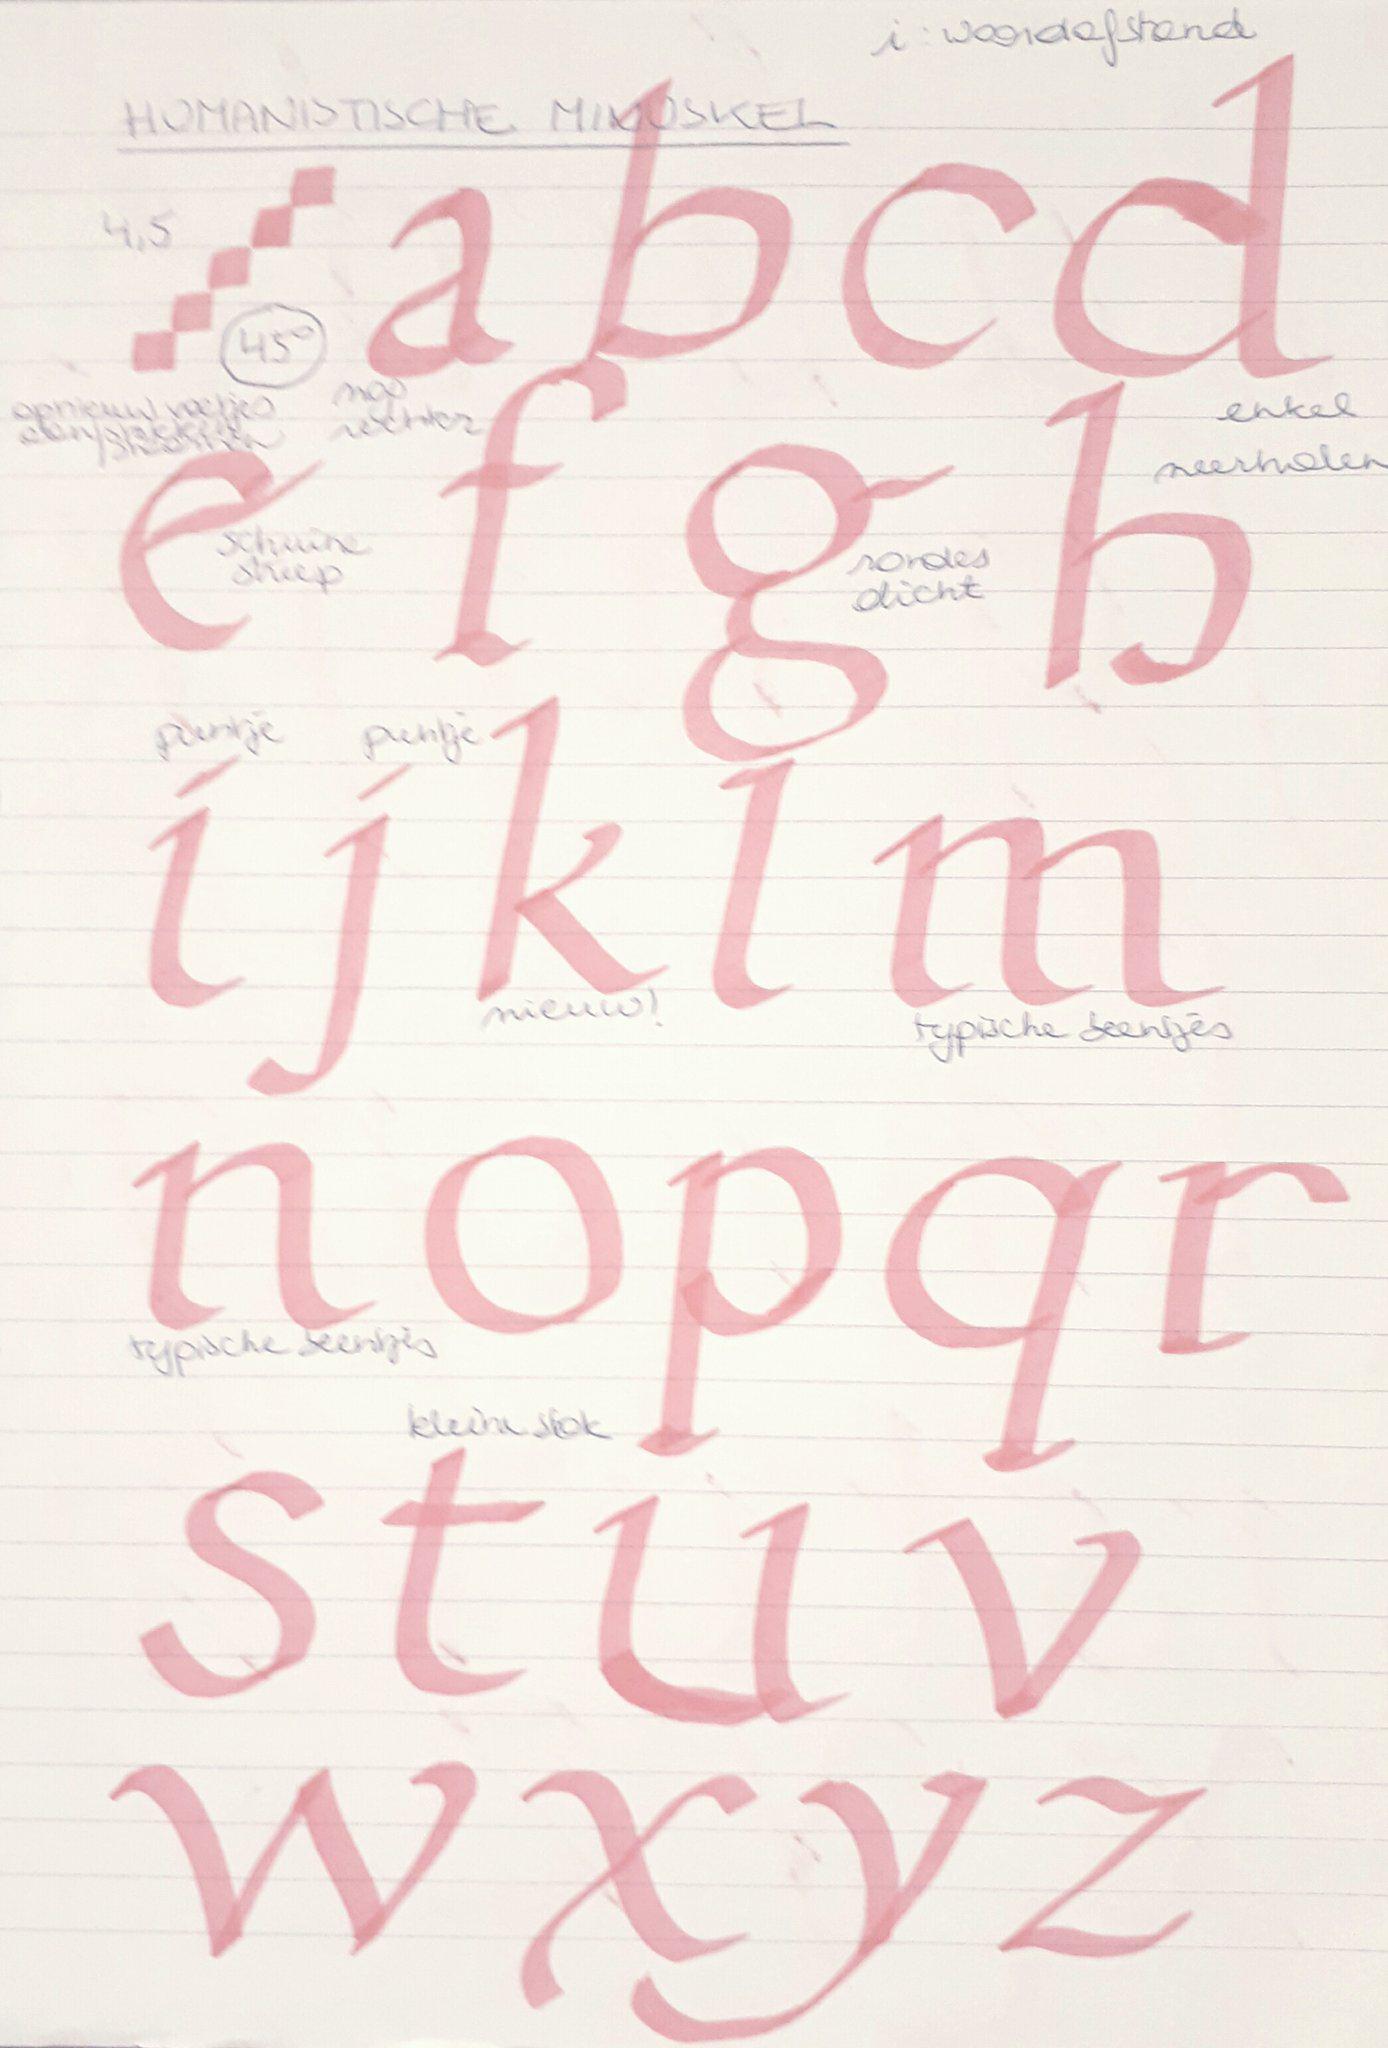 i : woordafstand
HUMANISTISCHE MINUSKEL
4,5
a b c d
45°
opnieuw voetjes
enkel
neerhalen
e f g h
schuine
streep
rondes
dicht
puntje puntje
i j k l m
nieuw!
typische beentjes
n o p q r
typische beentjes
kleine stok
s t u v
w x y z